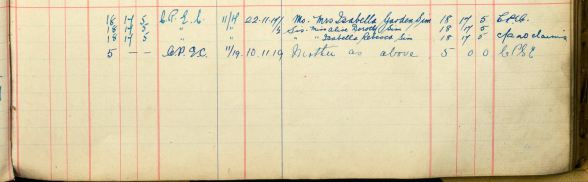 18 17 5 C.P.G.C. 11/17 22-11-17 Mo. Mrs Isabella Garden Sim 18 17 5
18 17 5 " " " 3 Sis. Miss Alice Dorothy Sim 18 17 5
18 17 5 " " " Isabella Rebecca Sim 18 17 5
5 - - 11/19 10.11.19 Mother as above 5 0 0